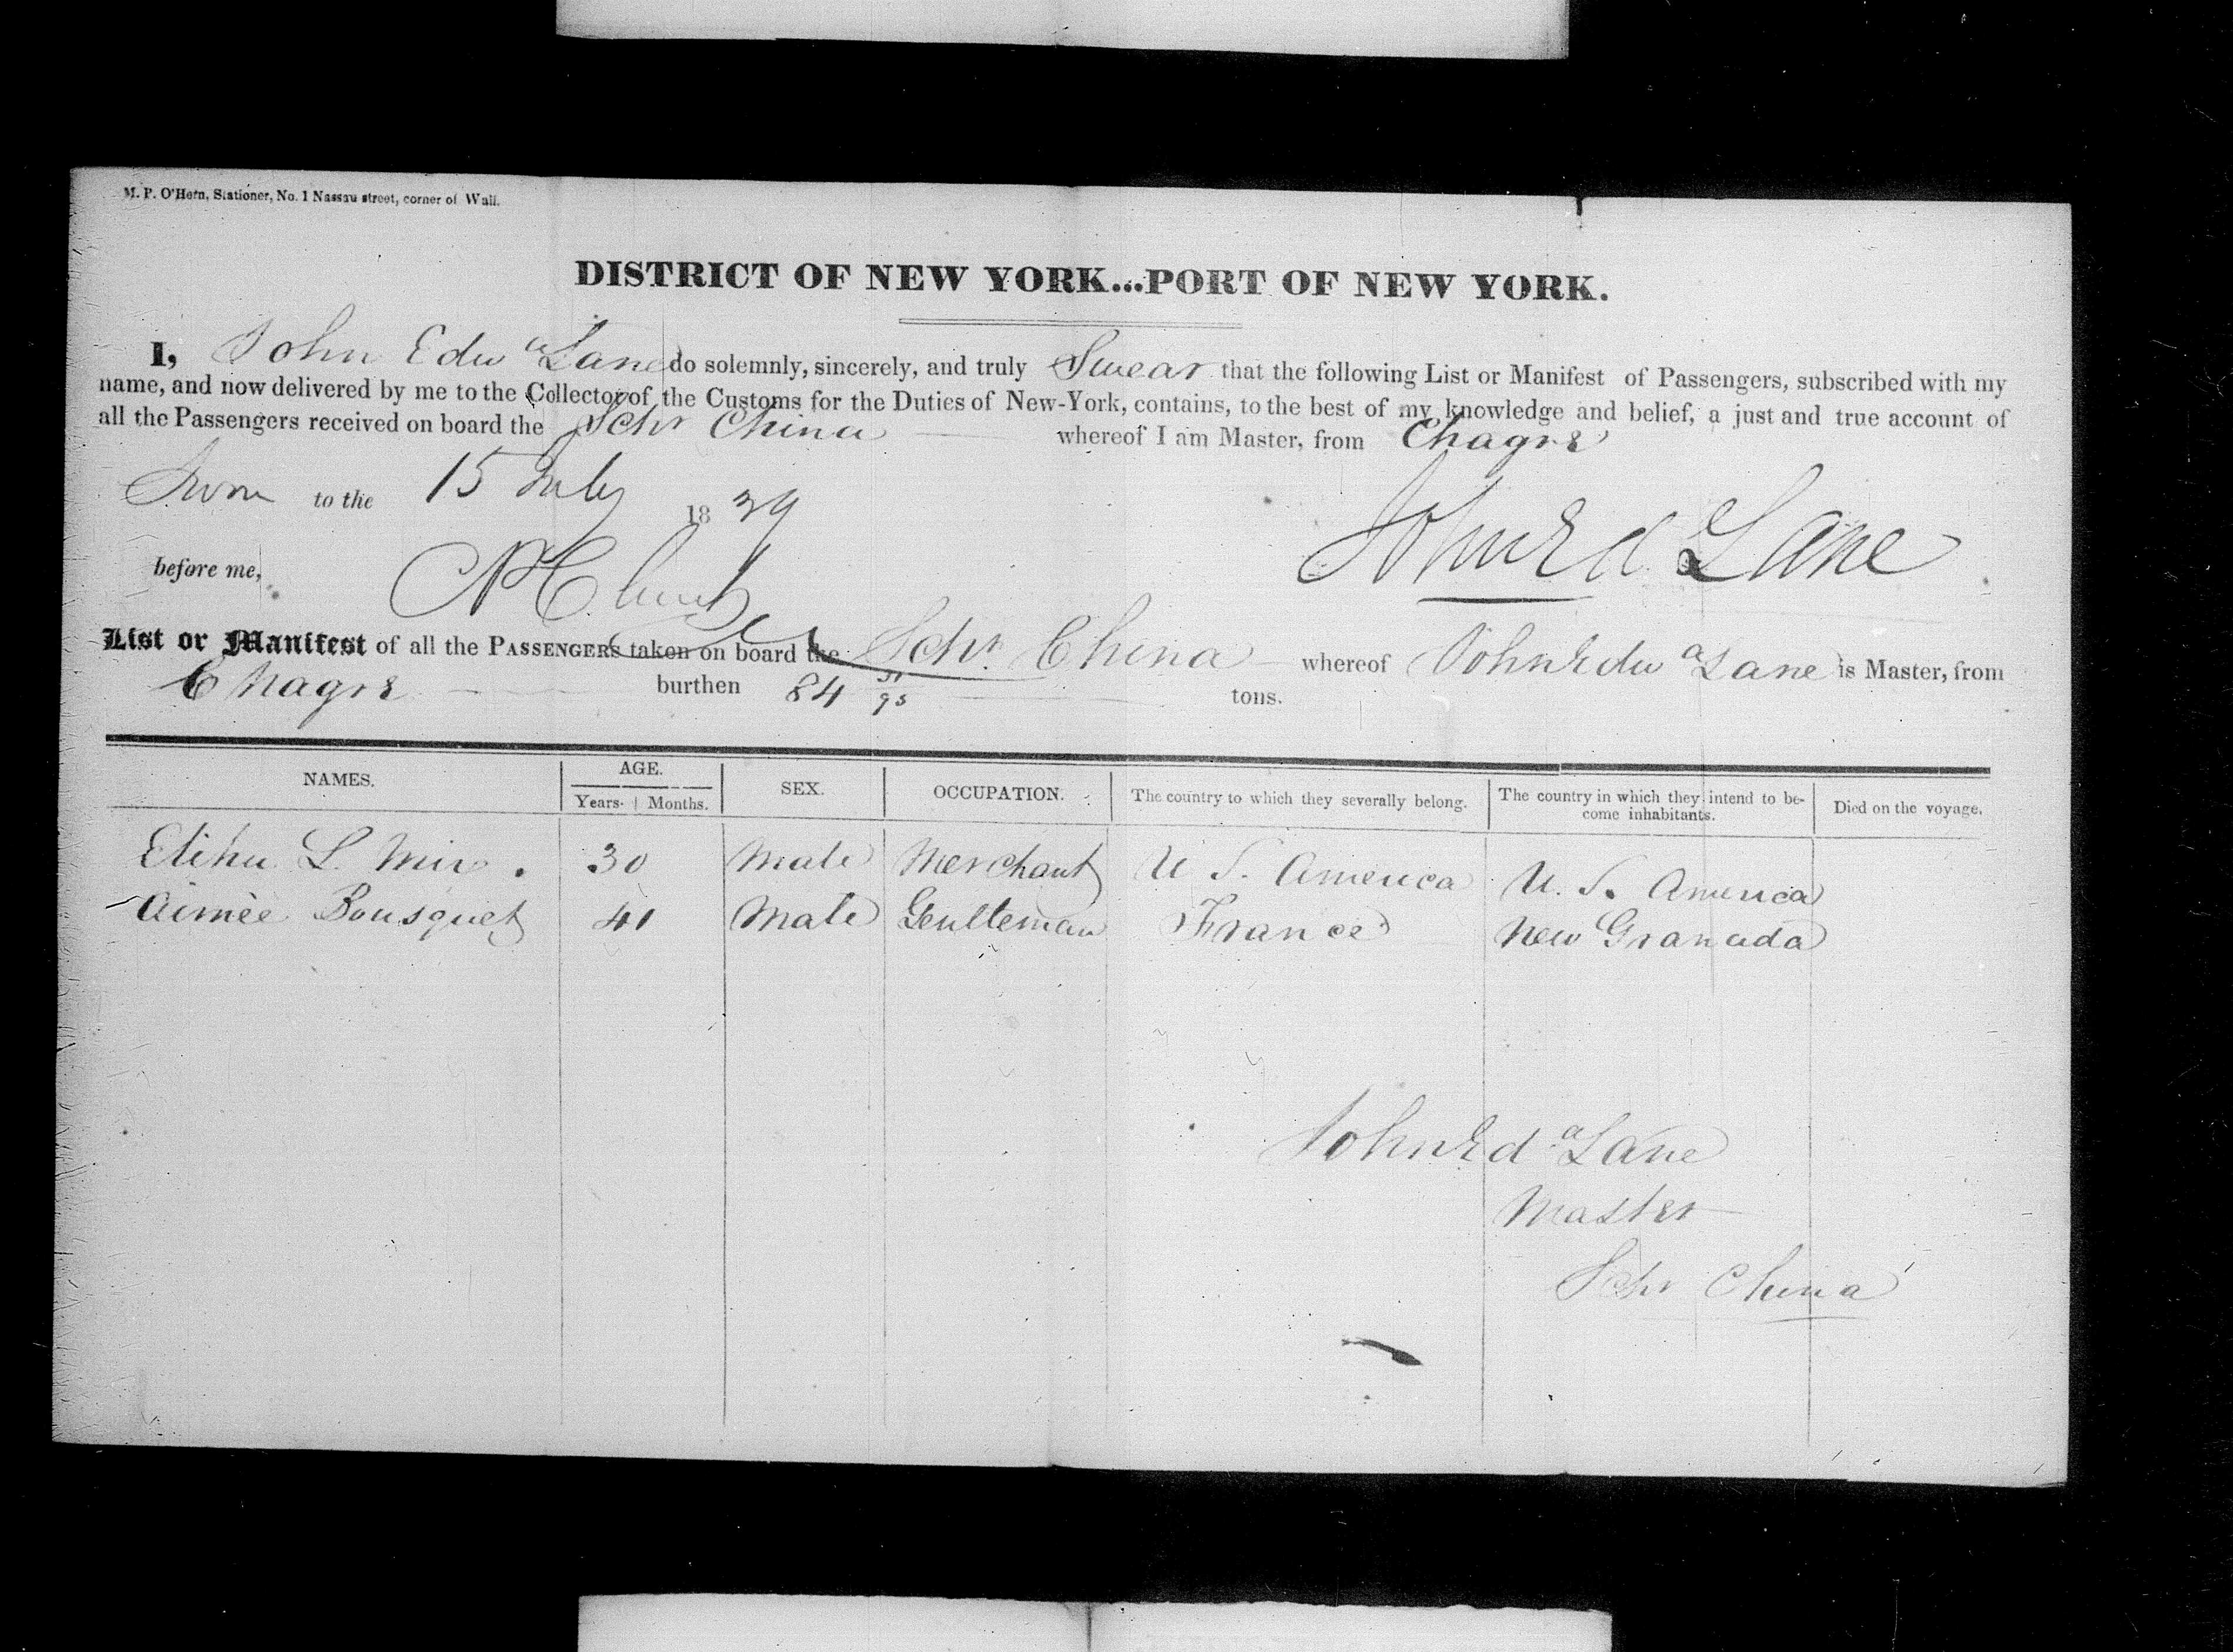 M. P. O'Hern, Stationer, No. 1 Nassau street, corner of Wall.
DISTRICT OF NEW YORK...PORT OF NEW YORK.
I, John Edwd Lane do solemnly, sincerely, and truly Swear that the following List or Manifest of Passengers, subscribed with my
name, and now delivered by me to the Collector of the Customs for the Duties of New-York, contains, to the best of my knowledge and belief, a just and true account of
all the Passengers received on board the Schr China whereof I am Master, from Chagre
Sworn to the 15 July 1839
John Ed Lane
before me,
List or Manifest of all the PASSENGERS taken on board the Schr China whereof John Edwd Lane is Master, from
Chagre burthen 84 /95 tons.
NAMES. AGE. SEX. OCCUPATION. The country to which they severally belong. The country in which they intend to become inhabitants. Died on the voyage.
Years. Months.
Elihu L. Mix. 30 Male Merchant U S. America U. S. America
Aimèe Bousquet 41 Male Gentleman France New Granada
John Edd Lane
Master
Schr China